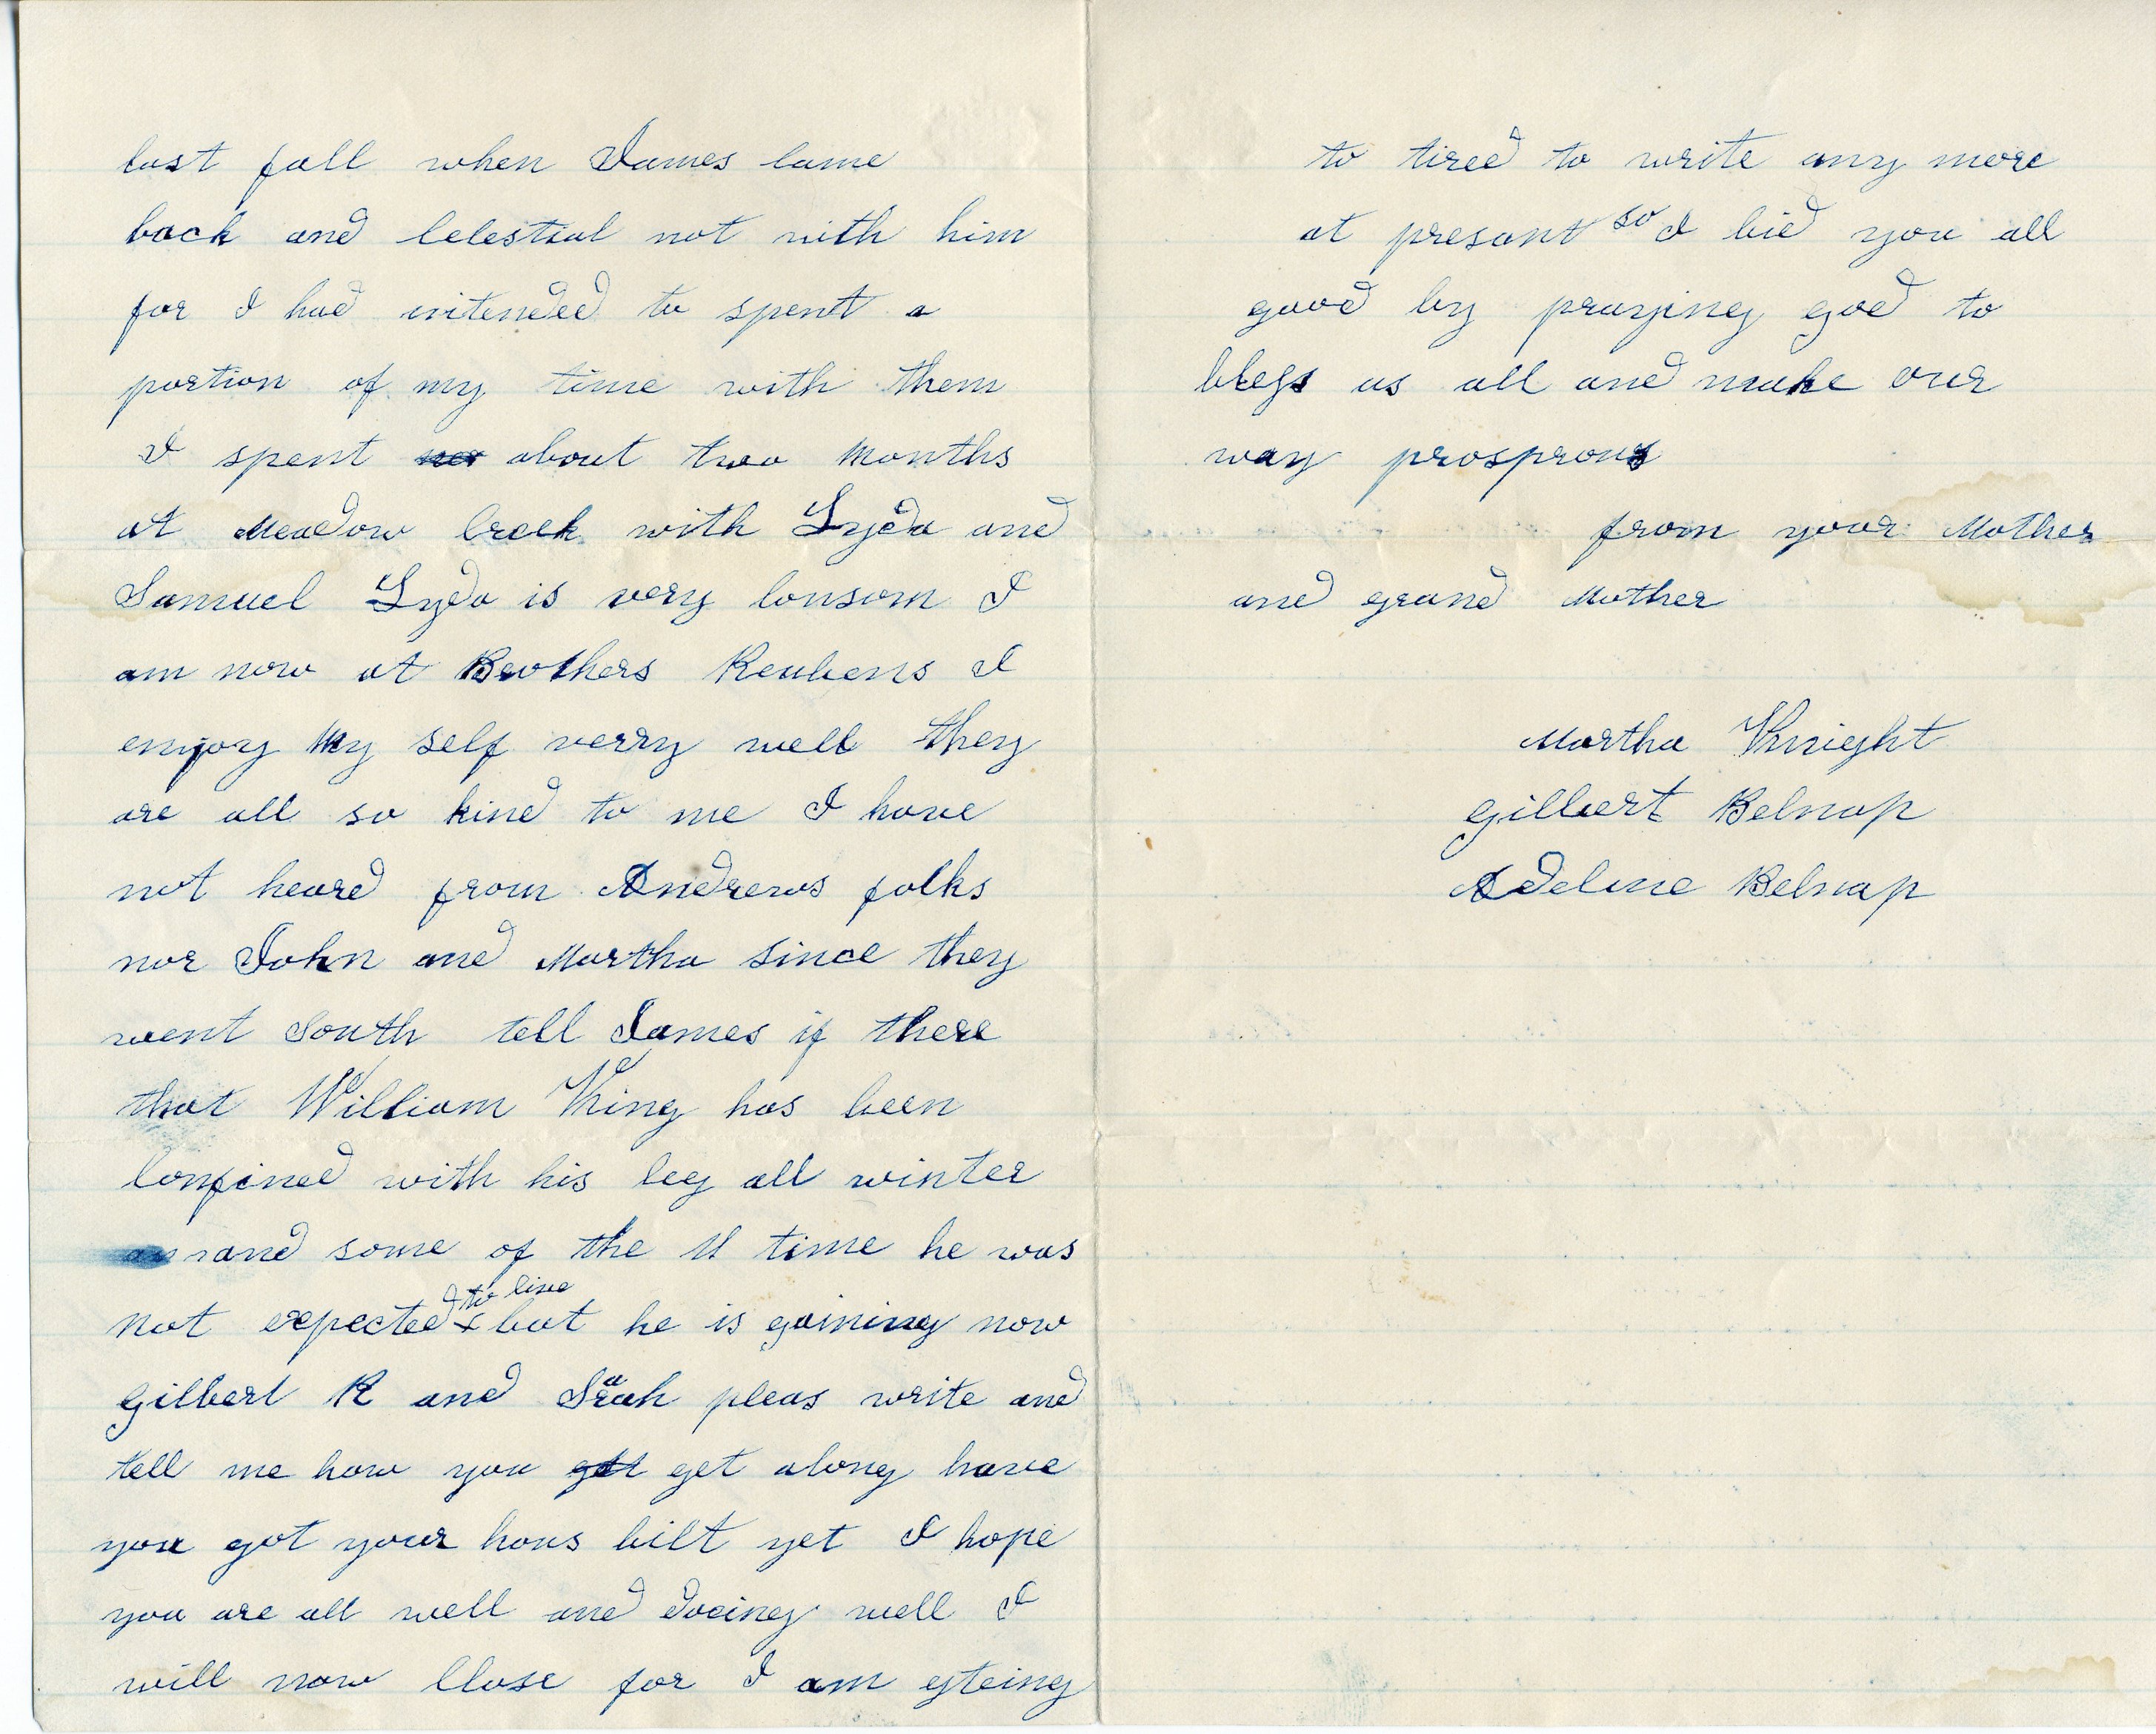 last fall when James came
back and Celestial not with him
for I had intended to spent a
portion of my time with them
I spent about two Months
at Meadow Creek with Lyda and
Samuel Lyda is very lonsom I
am now at Brothers Reubens I
enjoy My self verry well they
are all so kind to me I have
not heard from Andrews folks
nor John and Martha since they
went South tell James if there
that William King has been
Confined with his leg all winter
and some of the time he was
not expected to live but he is gaining now
Gilbert R and Sarah pleas write and
tell me how you get along have
you got your hous bilt yet I hope
you are all well and doeing well I
will now Close for I am gteing
to tired to write any more
at presant so I bid you all
good by praying god to
bless us all and make our
way prosprous
from your Mother
and grand Mother
Martha Knight
Gilbert Belnap
Adeline Belnap